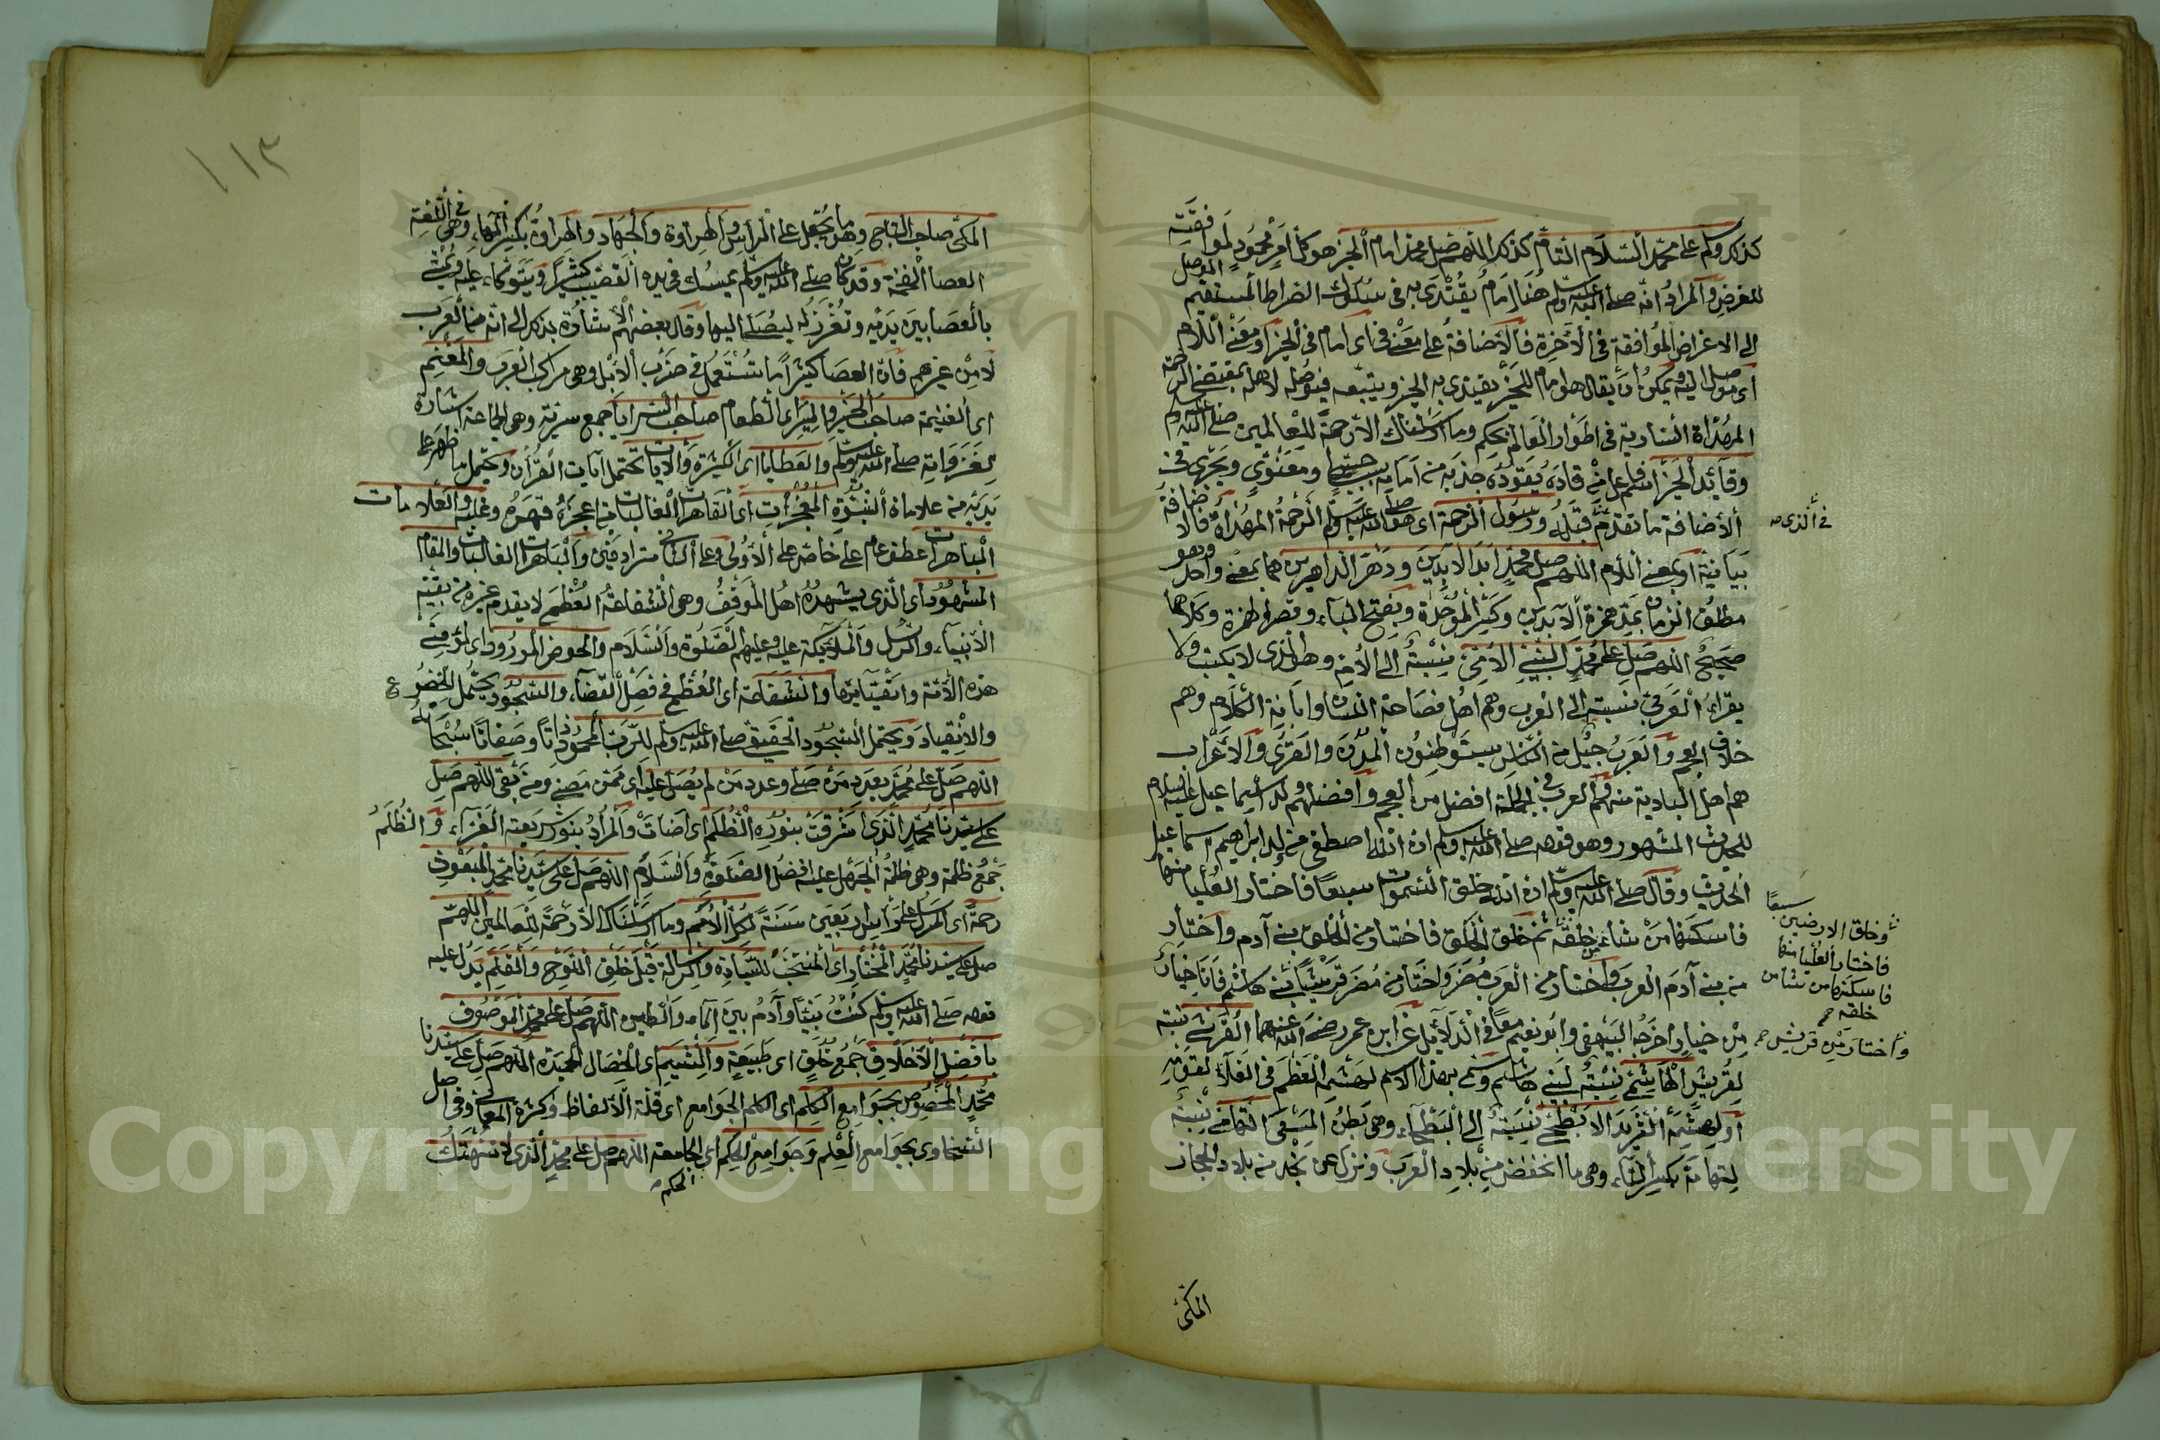 كذكر وسلم على محمد السلام التام كذكر اللهم صل محمد امام الخير هو كل أمر محمود لموافقته
للغرض والمراد انه صلى الله عليه وسلم هنا امام يقتدى به في سلوك الصراط المستقيم الموصل
الى الاغراض الموافقة في الآخرة فالاضافة على معنى في اى امام في الخير او معنى اللام
اى موصل اليه ويمكن أن يقال هو امام للخير يقتدى به الخير ويتبعه فيوصله لاهله بمقتضى الرحمة
المهداة السارية في اطوار العالم بحكم وما ارسلناك الا رحمة للعالمين صلى الله عليه وسلم
وقائد الخير اسم فاعل من قاده يقوده جذبه من امامه بسبب حسي او معنوي ويجرى في
الاضافة ما تقدم قبله ورسول الرحمة اى هو صلى الله عليه وسلم الرحمة المهداة فالاضافة
بيانية او بمعنى اللام اللهم صل محمد ابد الآبدين ودهر الداهرين هما بمعنى واحد وهو
مطلق الزمان بمد همزة الآبدين وكسر الموحدة وبفتح الباء وقصر الهمزة وكلاهما
صحيح اللهم صل على محمد النبي الأمي نسبة الى الأم وهو الذى لا يكتب ولا
يقرأ العربي نسبة الى العرب وهم اهل فصاحة اللسان وابانة الكلام وهم
خلاف العجم والعرب جيل من الناس يستوطنون المدن والقرى والأعراب
هم اهل البادية منهم والعرب في الجملة افضل من العجم وافضلهم ولد اسماعيل عليه السلام
للحديث المشهور وهو قوله صلى الله عليه وسلم ان الله اصطفى من ولد ابراهيم اسماعيل
الحديث وقال صلى الله عليه وسلم ان الله خلق السموات سبعا فاختار العليا منها
فاسكنها من شاء من خلقه ثم خلق الخلق فاختار من الخلق بني آدم واختار
من بني آدم العرب واختار من العرب مضر واختار من مضر قريشا بني هاشم فانا خيار
من خيار اخرجه البيهقي وابو نعيم معا في الدلائل عن ابن عمر رضى الله عنهما القرشي نسبة
لقريش الهاشمي نسبة لبني هاشم وسمى بهذا الاسم لهشمه العظم في الغلاء لقوته
او لهشمه الثريد الابطحي نسبة الى البطحاء وهي بطن المسعى التهامي نسبة
لتهامة بكسر التاء وهى ما انخفض من بلاد العرب ونزل عن نجد من بلاد الحجاز
في الذى
وخلق الارضين سبعا
فاختار العليا منها
فاسكنها من شاء من
خلقه
واختار من قريش
المكي
١١٣
المكي صاحب التاج وهو ما يجعل على الرأس والهراوة والجهاد والهراوة بكسر الهاء وهى في اللغة
العصا الضخمة وقد كان صلى الله عليه وسلم يمسك في يده القضيب كثيرا ويتوكأ عليه ويمشى
بالعصا بين يديه وتغرز له ليصلى اليها وقال بعضهم الاشارة بذكر الى انه من العرب
لا من غيرهم فان العصا كثيرا ما تستعمل في ضرب الابل وهى مراكب العرب والمغنم
اى الغنيمة صاحب الخير والمير اى الطعام صاحب السرايا جمع سرية وهى الجماعة اشارة
لغزواته صلى الله عليه وسلم والعطايا اى الكثيرة والآيات تحتمل آيات القرآن ويحتمل ما ظهر على
يديه من علاماة النبوة المعجزات اى القاهرات الغالبات من اعجزه قهره وغلبه والعلامات
الباهرات عطف عام على خاص على الأولى وعلى الثاني مترادفين والباهرات الغالبات والمقام
المشهود اى الذى يشهده اهل الموقف وهى الشفاعة العظمى لا يقدم غيره من بقية
الانبياء والرسل والملائكة عليه وعليهم الصلوة والسلام والحوض المورود اى لمؤمني
هذه الامة واتقيائها والشفاعة اى العظمى في فصل القضاء والسجود يحتمل الخضوع
والانقياد ويحتمل السجود الحقيقي صلى الله عليه وسلم للرب المحمود ذاتا وصفاتا سبحانه
اللهم صل على محمد بعدد من صلى وعدد من لم يصل عليه اى ممن مضى ومن بقى اللهم صل
على سيدنا محمد الذى اشرقت بنوره الظلم اى اضاءت والمراد بنوره شريعته الغراء والظلم
جمع ظلمة وهى ظلمة الجهل عليه افضل الصلوة والسلام اللهم صل على سيدنا محمد المبعوث
رحمة اى المرسل على رأس اربعين سنة لكل الأمم وما ارسلناك الا رحمة للعالمين اللهم
صل على سيدنا محمد المختار اى المنتخب للسيادة والرسالة قبل خلق اللوح والقلم يدل عليه
قوله صلى الله عليه وسلم كنت نبيا وآدم بين الماء والطين اللهم صل على محمد الموصوف
بافضل الاخلاق جمع خلق اى طبيعة والشيم اى الخصال الحميدة اللهم صل على سيدنا
محمد المخصوص بجوامع الكلم اى الكلم الجوامع اى قلة الالفاظ وكثرة المعانى وفى اصل
السخاوى بجوامع العلم وجوامع الحكم اى الجامعة اللهم صل على محمد الذى لا تنتهك
الحكم
Copyright © King Saud University